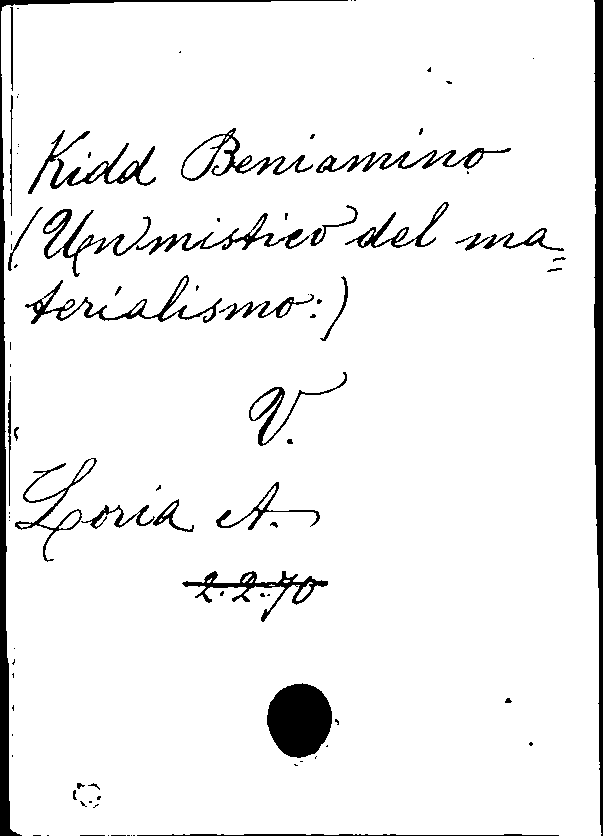 Kidd Beniamino
(Un mistico del ma=
terialismo:)
V.
Loria A.
2.2.70